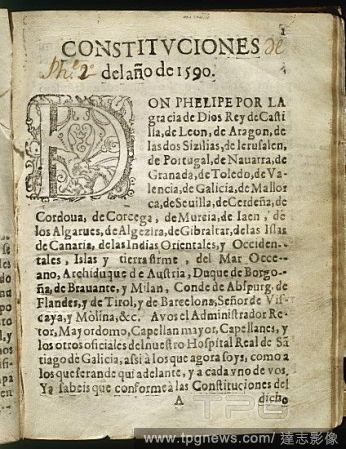 CONSTITVCIONES de
Phe. 2º del año de 1590.
1
DON PHELIPE POR LA
gracia de Dios Rey de Casti
lla, de Leon, de Aragon, de
las dos Sizilias, de Ierusalen,
de Portugal, de Nauarra, de
Granada, de Toledo, de Va-
lencia, de Galicia, de Mallor
ca, de Seuilla, de Cerdeña, de
Cordoua, de Corcega, de Murcia, de Iaen, de
los Algarues, de Algezira, de Gibraltar, de las Islas
de Canaria, de las Indias Orientales, y Occiden-
tales, Islas y tierra firme, del Mar Occe-
ano, Archiduque de Austria, Duque de Borgo-
ña, de Brauante, y Milan, Conde de Abspurg, de
Flandes, y de Tirol, y de Barcelona, Señor de Viz-
caya, y Molina, &c. A vos el Administrador Re-
tor, Mayordomo, Capellan mayor, Capellanes, y
los otros oficiales del nuestro Hospital Real de Sã
tiago de Galicia, assi à los que agora soys, como a
los que serande qui adelante, y a cada vno de vos,
Ya sabeis que conforme à las Constituciones del
A dicho
TPG
www.tpgnews.com/達志影像